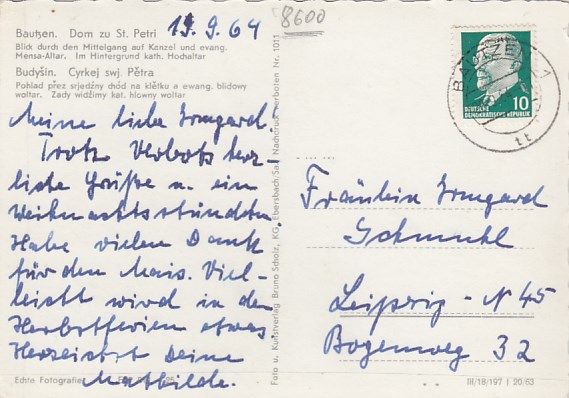 Bautzen. Dom zu St. Petri
Blick durch den Mittelgang auf Kanzel und evang.
Mensa-Altar. Im Hintergrund kath. Hochaltar
Budyšin. Cyrkej swj. Pětra
Pohlad přez srjedźny chód na klětku a ewang. blidowy
woltar. Zady widźimy kat. hłowny woltar
9.64
8600
Meine liebe Irmgard!
Trotz Verbots herz-
liche Grüße u. ein
Weihnachtsstündchen
Habe vielen Dank
für den Mais. Viel-
leicht wird in den
Herbstferien etwas.
Herzlichst Deine
Mathilde.
Echte Fotografie
Foto u. Kunstverlag Bruno Scholz, KG, Ebersbach/Sa. Nachdruck verboten Nr. 1011
BAUTZEN 1
tt
10
DEUTSCHE
DEMOKRATISCHE REPUBLIK
Fräulein Irmgard
Schmuhl
Leipzig - N 45
Bogenweg 32
III/18/197 | 20 63